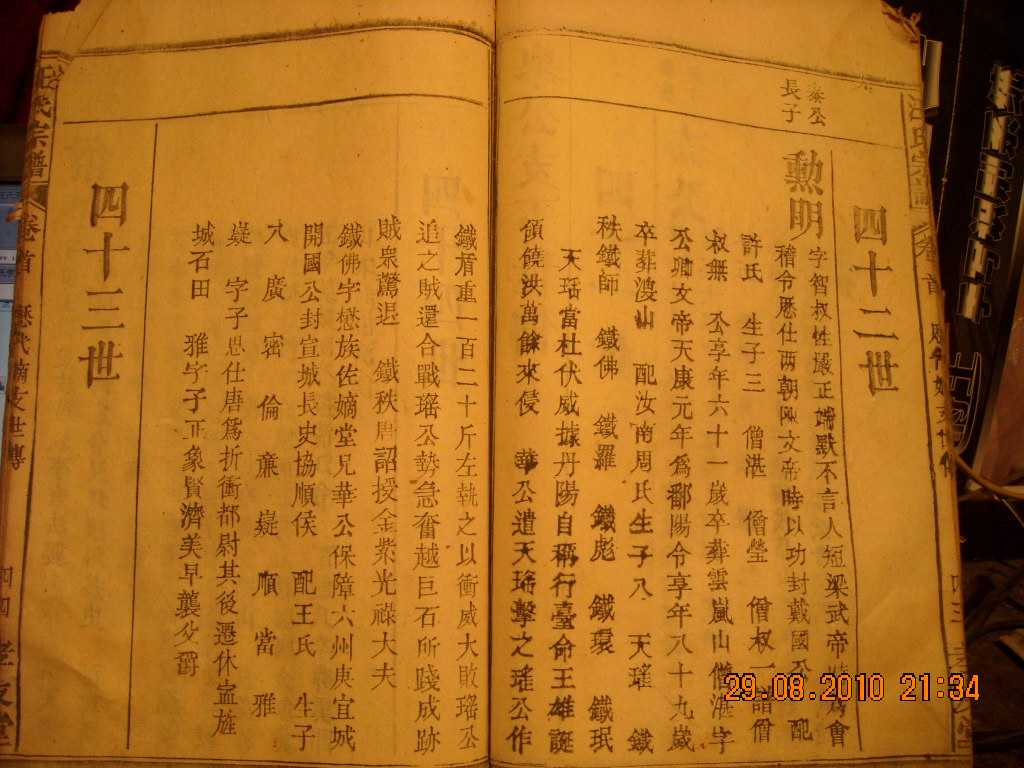 汪氏宗譜
卷首
四十二世
泰公
長子
勲明
字智叔性嚴正端默不言人短梁武帝
會
稽令歷仕两朝陳文帝時以功封戴國公 配
許氏 生子三 僧湛 僧瑩 僧叔一諱僧
叔無 公享年六十一歲卒葬雲嵐山僧湛字
公卿文帝天康元年爲鄱陽令享年八十九歲
卒葬 山 配汝南周氏生子八 天瑤 鐵
秩鐵師 鐵佛 鐵羅 鐵彪 鐵環 鐵珉
天瑤當杜伏威據丹陽自稱行臺命王雄誕
領饒洪萬餘來侵 華公遣天瑤擊之瑤公作
鐵盾重一百二十斤左執之以衝威大敗瑤公
追之賊還合戰瑤公勢急奮越巨石所踐成跡
賊衆驚退 鐵秩唐詔授金紫光祿大夫
鐵佛字懋族佐嫡堂兄華公保障六州庚宜城
開國公封宣城長史協順侯 配王氏 生子
八 廣 密 倫 亷 嶷 順 當 雅
嶷 字子思仕唐爲折衝都尉其後遷休
城石田 雅字子正象賢濟美早襲父爵
四十三世
汪氏宗譜
卷首
歷代
世傳
四四
孝友堂
29.08.2010 21:34